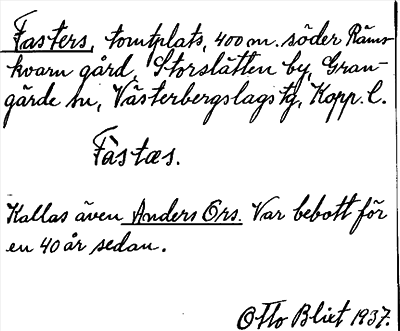 Fasters, tomtplats, 400 m. söder Räms-
kvarn gård, Storslätten by, Gran-
gärde sn, Västerbergslags tg, Kopp. l.
Fàstæs.
Kallas även Anders Ors. Var bebott för
en 40 år sedan.
Otto Blixt 1937.